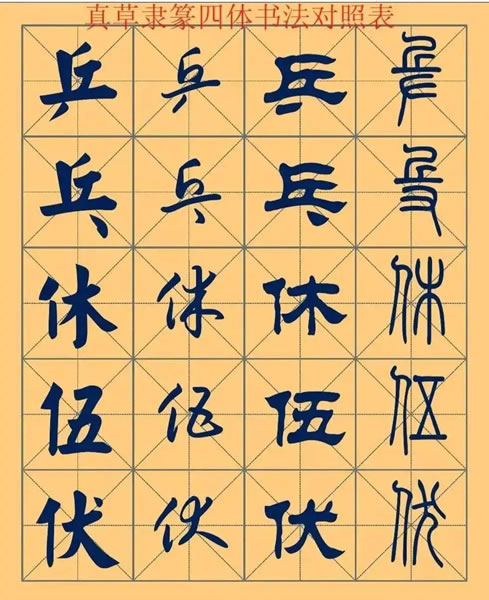 真草隶篆四体书法对照表
乒 乒 乒 乒
乓 乓 乓 乓
休 休 休 休
伍 伍 伍 伍
伏 伏 伏 伏